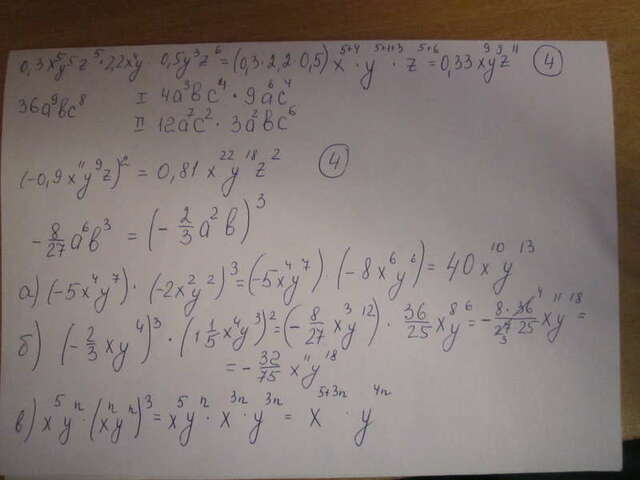 0,3x⁵y⁵z⁵·2,2x⁴y 0,5y³z⁶=(0,3·2,2·0,5)x⁵⁺⁴·y⁵⁺¹⁺³·z⁵⁺⁶=0,33x⁹y⁹z¹¹ (4)
36a⁹bc⁸ I 4a³bc⁴·9a⁶c⁴
II 12a⁷c²·3a²bc⁶
(-0,9x¹¹y⁹z)²=0,81x²²y¹⁸z² (4)
-8/27a⁶b³=(-2/3a²b)³
а)(-5x⁴y⁷)·(-2x²y²)³=(-5x⁴y⁷)·(-8x⁶y⁶)=40x¹⁰y¹³
б)(-2/3xy⁴)³·(1 1/5x⁴y³)²=(-8/27x³y¹²)·36/25x⁸y⁶=-8·36⁴/27₃·25x¹¹y¹⁸=
=-32/75x¹¹y¹⁸
в)x⁵yⁿ·(xⁿyⁿ)³=x⁵yⁿ·x³ⁿ·y³ⁿ=x⁵⁺³ⁿ·y⁴ⁿ